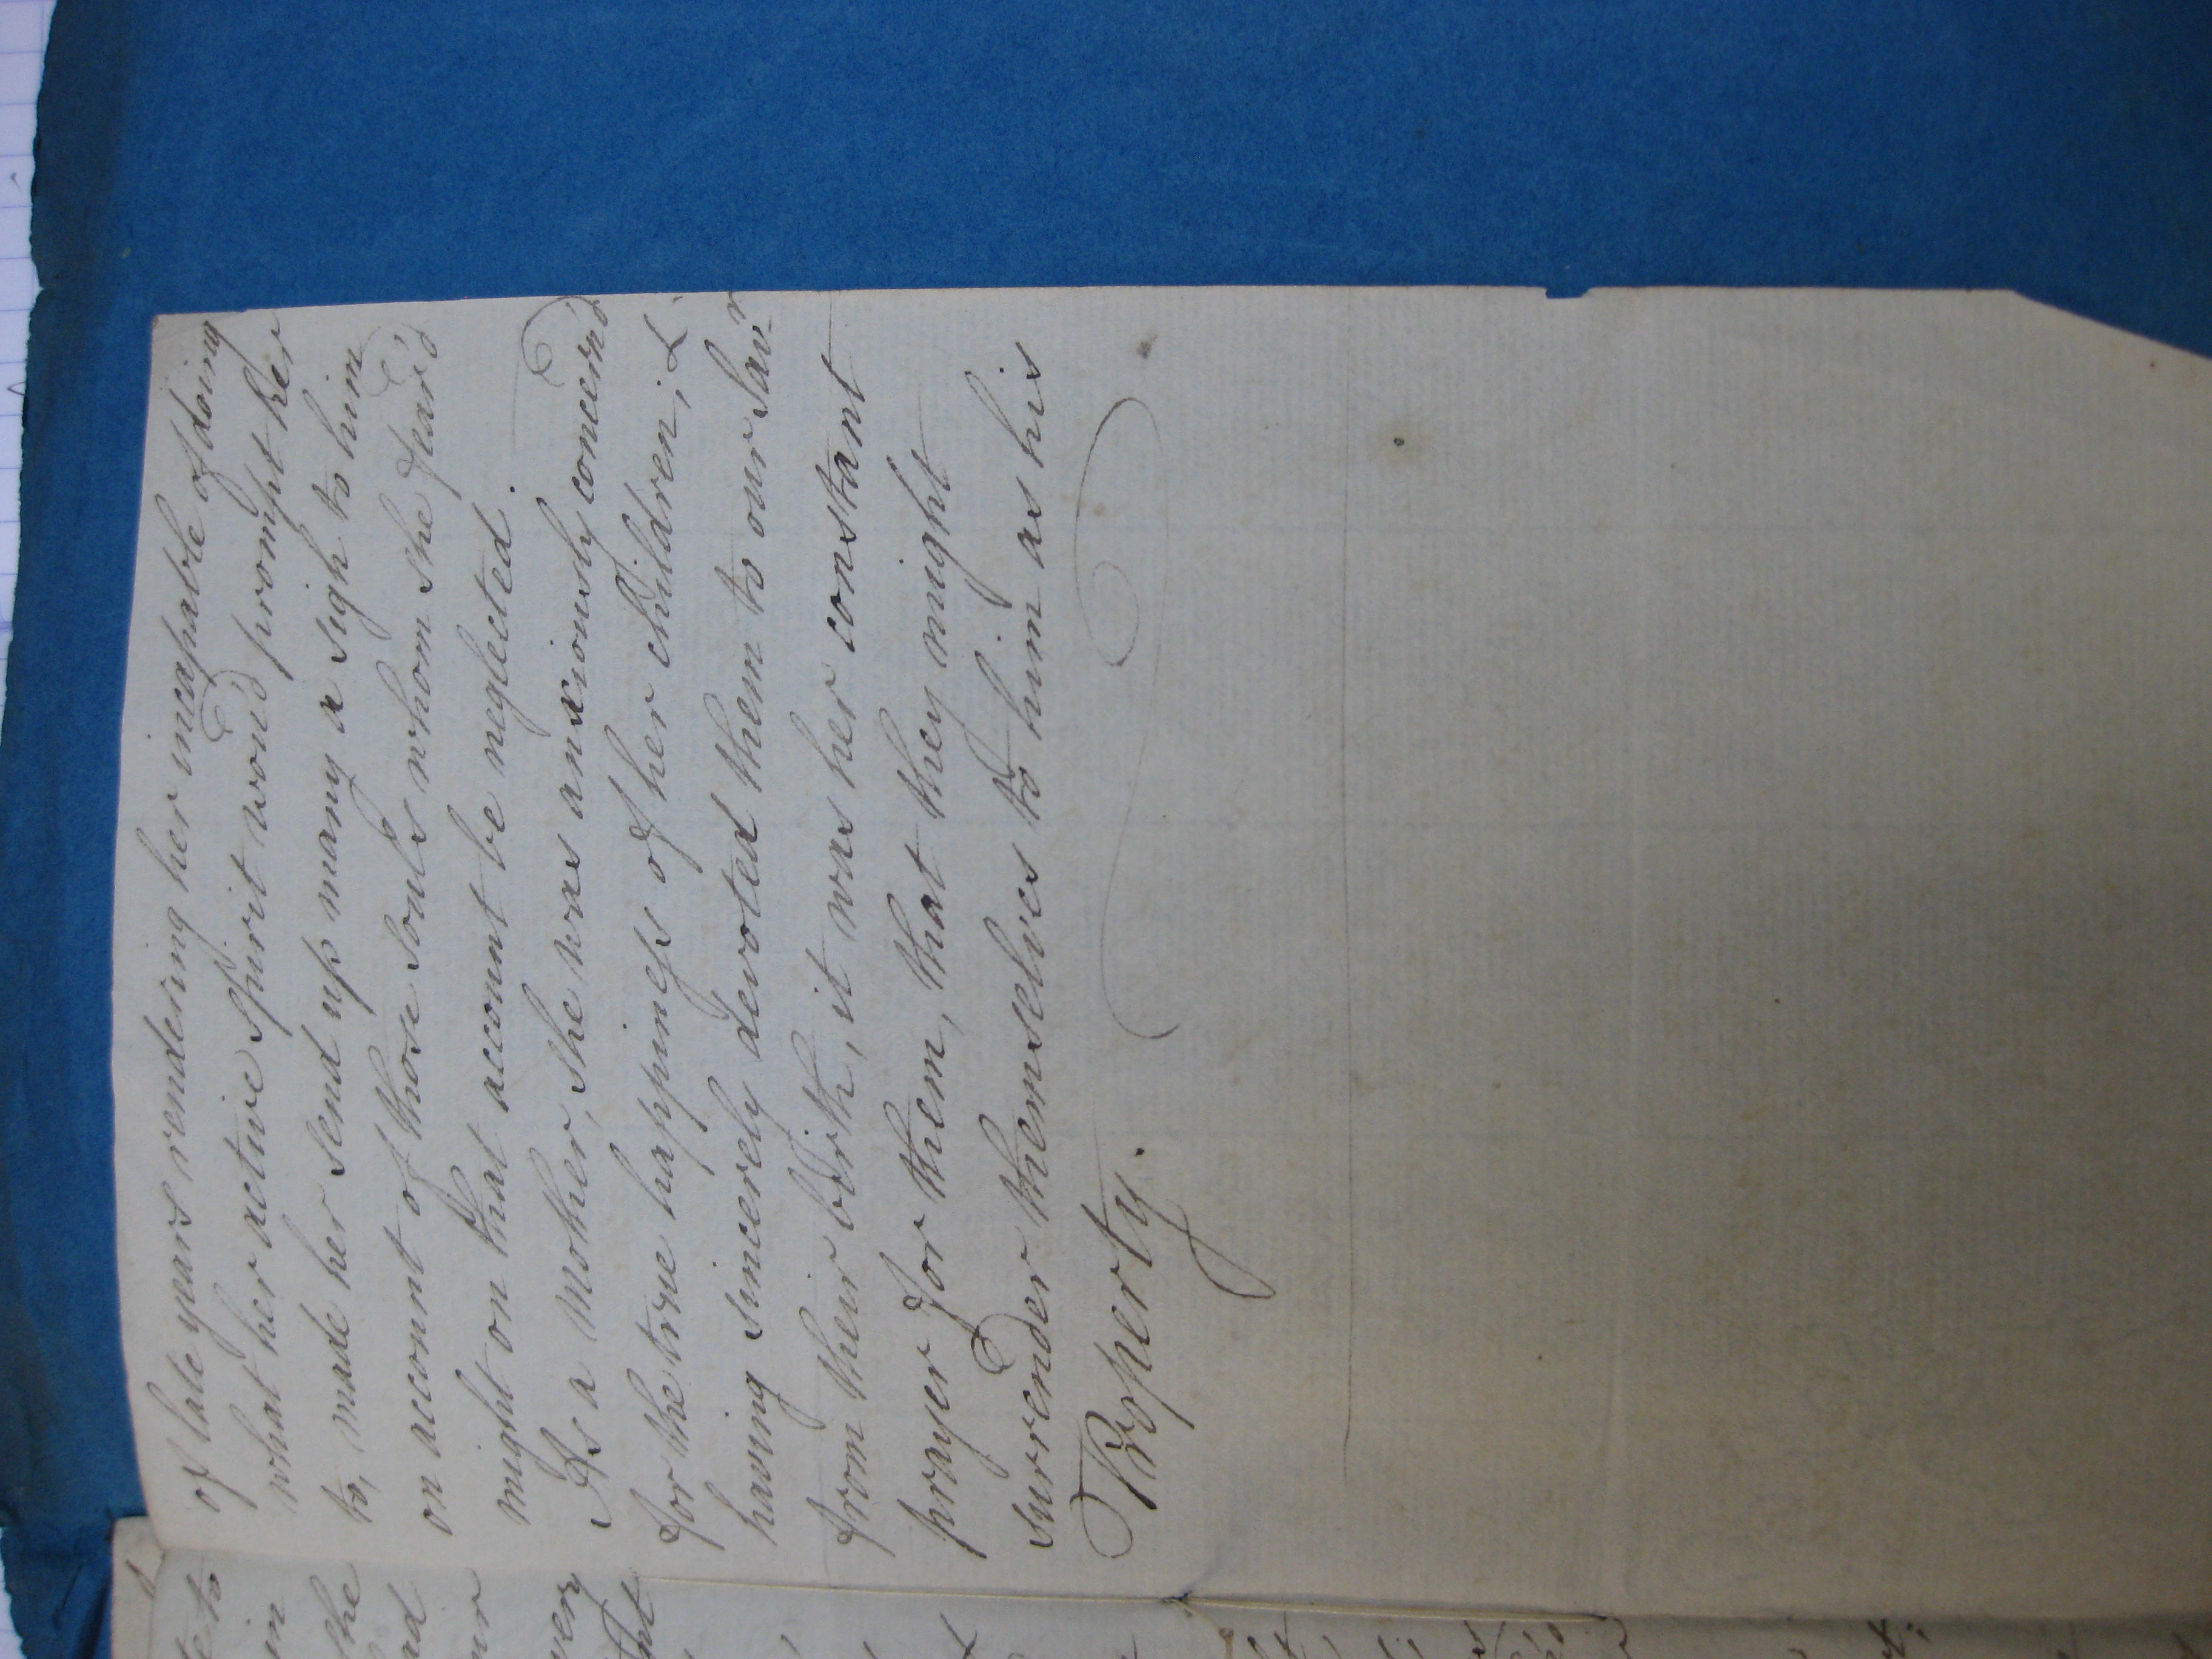 of late years rendering her incapable of doing
what her active spirit wou'd prompt her
to, made her send up many a sigh to him
on account of those souls whom she fear'd
might on that account be neglected.
As a Mother, she was anxiously concern'd
for the true happineſs of her children; &
having sincerely devoted them to our Savr
from their birth, it was her constant
prayer for them, that they might
surrender themselves to him as his
Property.